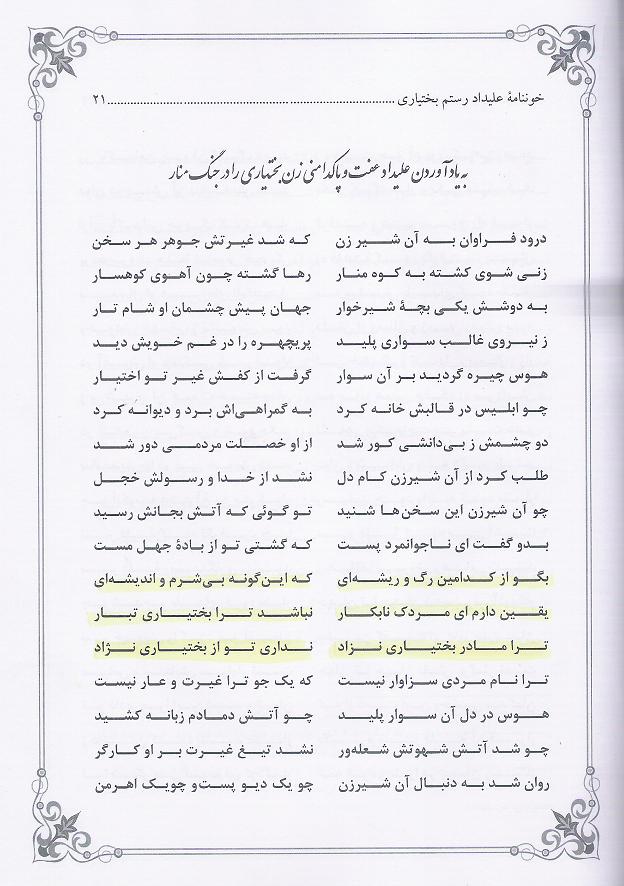 خوننامهٔ علیداد رستم بختیاری ........................................................................ ۲۱
به یاد آوردن علیداد عفت و پاکدامنی زن بختیاری را در جنگ منار
درود فراوان به آن شیر زن که شد غیرتش جوهر هر سخن
زنی شوی کشته به کوه منار رها گشته چون آهوی کوهسار
به دوشش یکی بچهٔ شیرخوار جهان پیش چشمان او شام تار
ز نیروی غالب سواری پلید پریچهره را در غم خویش دید
هوس چیره گردید بر آن سوار گرفت از کفش غیر تو اختیار
چو ابلیس در قالبش خانه کرد به گمراهی‌اش برد و دیوانه کرد
دو چشمش ز بی‌دانشی کور شد از او خصلت مردمی دور شد
طلب کرد از آن شیرزن کام دل نشد از خدا و رسولش خجل
چو آن شیرزن این سخن‌ها شنید تو گوئی که آتش بجانش رسید
بدو گفت ای ناجوانمرد پست که گشتی تو از بادهٔ جهل مست
بگو از کدامین رگ و ریشه‌ای که این‌گونه بی‌شرم و اندیشه‌ای
یقین دارم ای مردک نابکار نباشد ترا بختیاری تبار
ترا مادر بختیاری نزاد نداری تو از بختیاری نژاد
ترا نام مردی سزاوار نیست که یک جو ترا غیرت و عار نیست
هوس در دل آن سوار پلید چو آتش دمادم زبانه کشید
چو شد آتش شهوتش شعله‌ور نشد تیغ غیرت بر او کارگر
روان شد به دنبال آن شیرزن چو یک دیو پست‌و چویک اهرمن